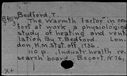 Bedford, T.
The warmth factor in com-
fort at work, a physiological
study of heating and ven-
tilation By T. Bedford. Lon-
don, H.M. Stat. off. 1936.
110 p. (Indust. health re-
search board Report, №76)